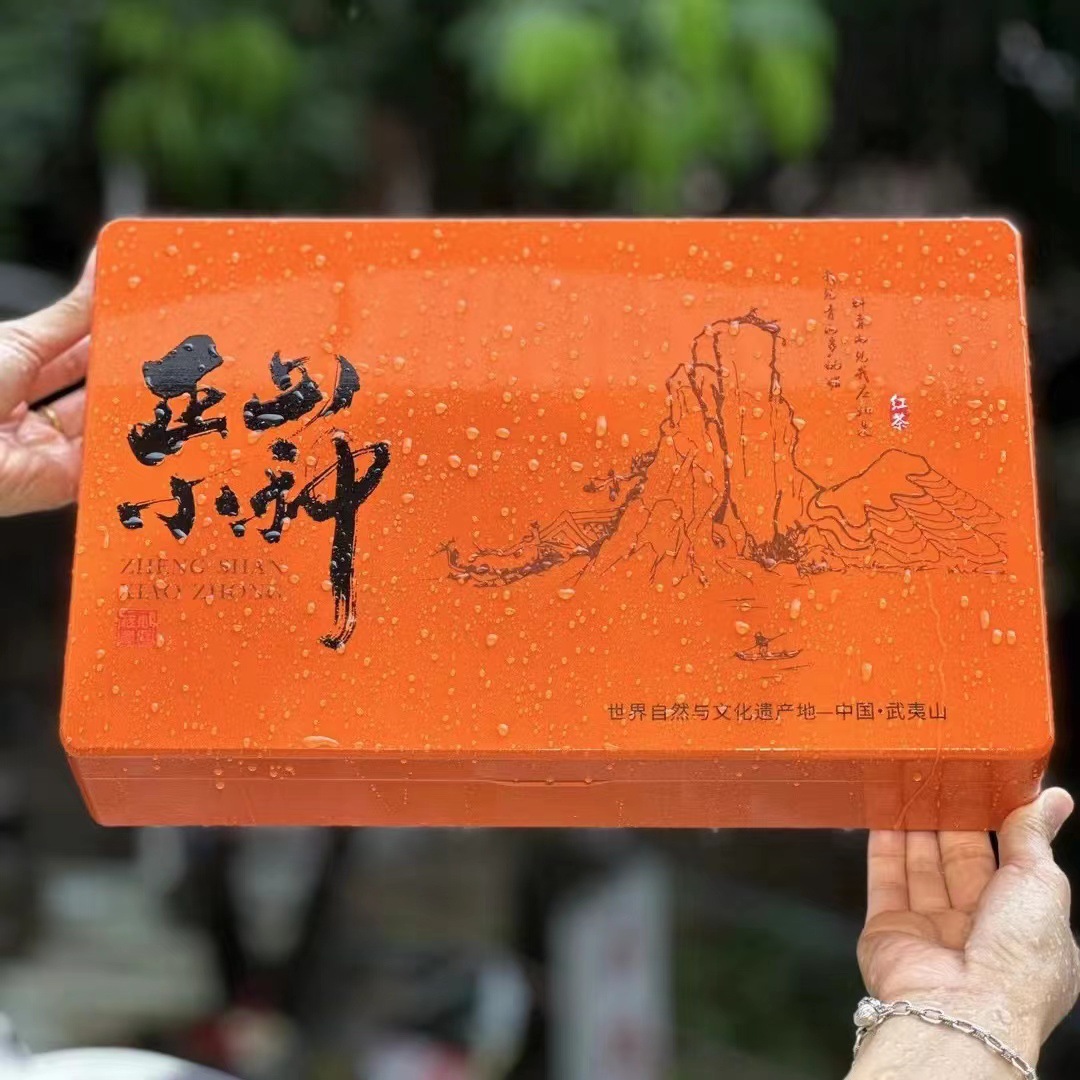 正山
小种
ZHENG SHAN
XIAO ZHONG
红茶
世界自然与文化遗产地—中国·武夷山